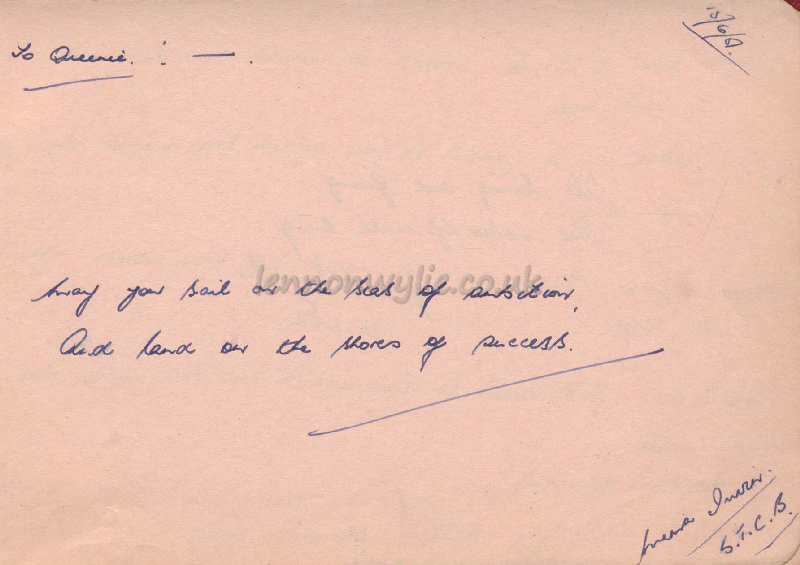 To Queenie. : — .
lennonwylie.co.uk
May you sail on the seas of ambition,
And land on the shores of success.
S.T.C.B.